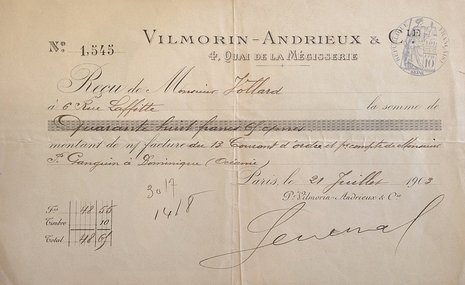 VILMORIN-ANDRIEUX & CIE
Nº 1,545
4, QUAI DE LA MÉGISSERIE
Reçu de Monsieur Vollard
à 6 Rue Laffitte la somme de
Quarante huit francs
montant de n/ facture du 13 Courant d'ordre et pr compte de Monsieur
P. Gauguin à Dominique (Océanie)
Paris, le 21 Juillet 1903
Pr Vilmorin-Andrieux & Cie
3017
1418
Fs 48 55
Timbre 10
Total 48 65